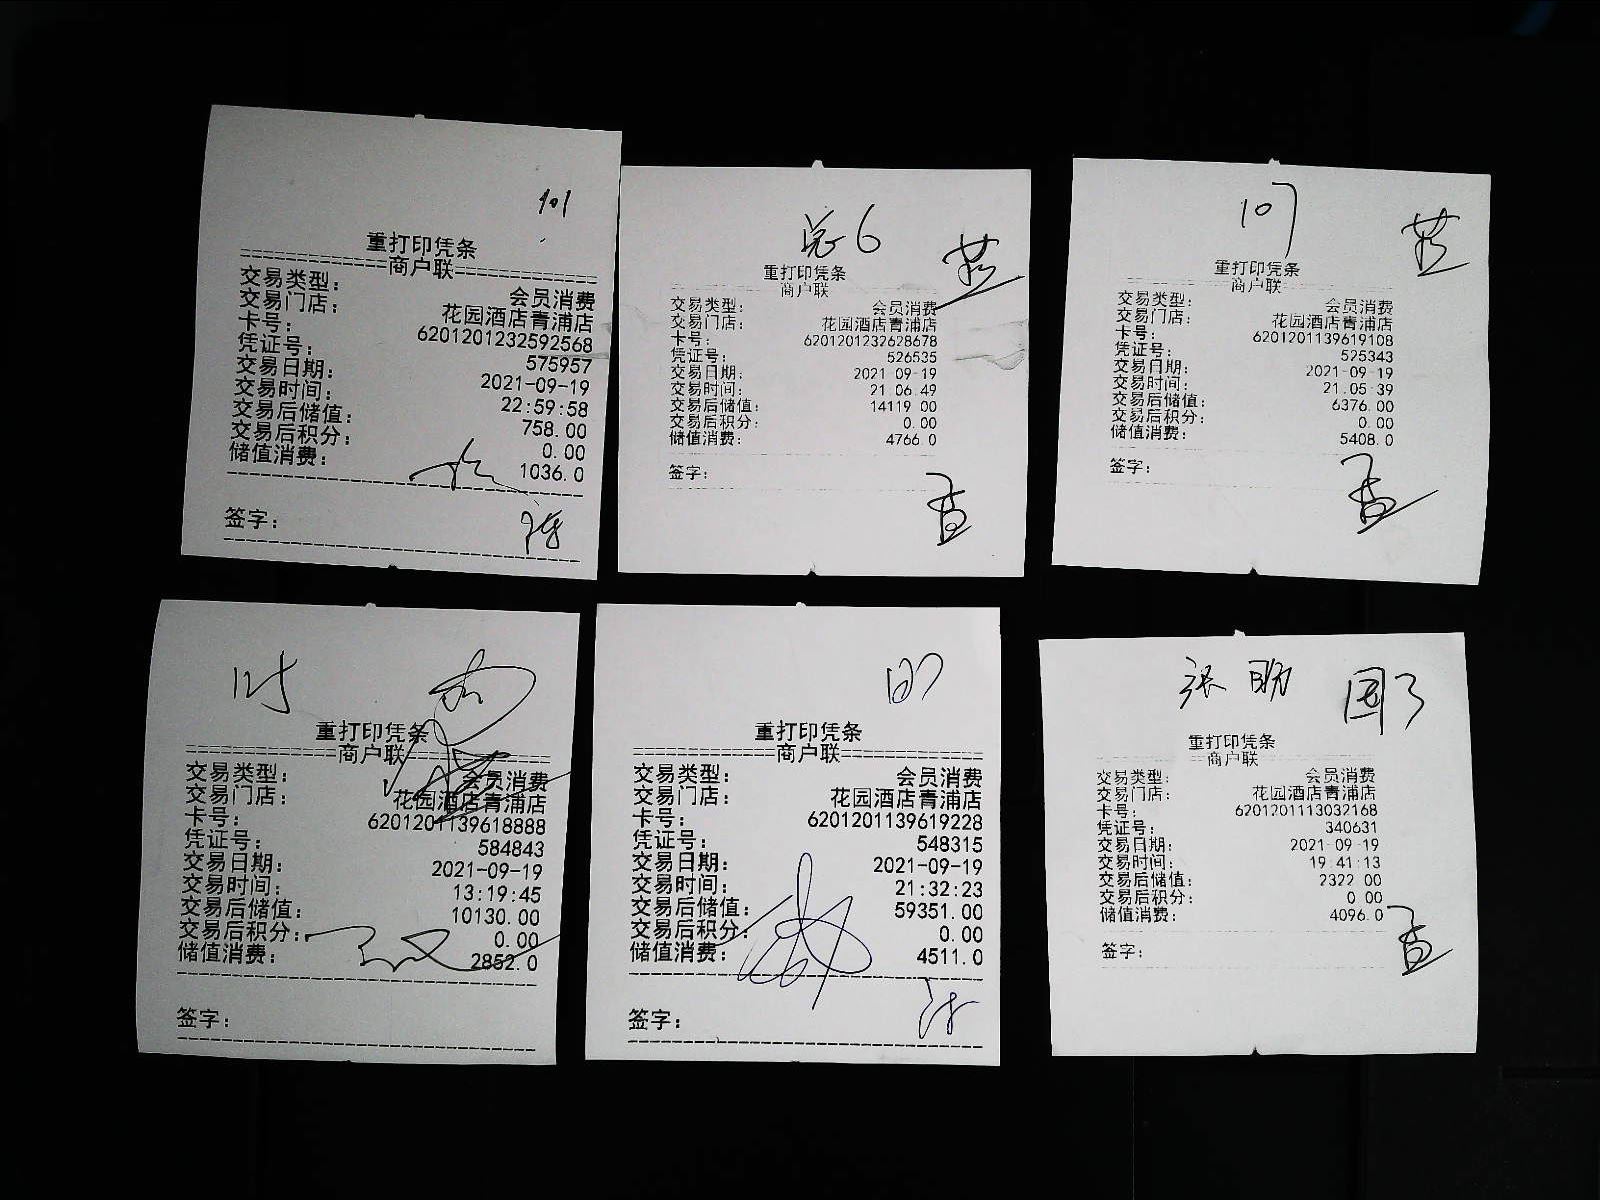 101
重打印凭条
商户联
交易类型: 会员消费
交易门店: 花园酒店青浦店
卡号: 6201201232592568
凭证号: 575957
交易日期: 2021-09-19
交易时间: 22:59:58
交易后储值: 758.00
交易后积分: 0.00
储值消费: 1036.0
签字:
总6
重打印凭条
商户联
交易类型: 会员消费
交易门店: 花园酒店青浦店
卡号: 6201201232628678
凭证号: 526535
交易日期: 2021-09-19
交易时间: 21:06:49
交易后储值: 14119.00
交易后积分: 0.00
储值消费: 4766.0
签字:
107
重打印凭条
商户联
交易类型: 会员消费
交易门店: 花园酒店青浦店
卡号: 6201201139619108
凭证号: 525343
交易日期: 2021-09-19
交易时间: 21:05:39
交易后储值: 6376.00
交易后积分: 0.00
储值消费: 5408.0
签字:
125
重打印凭条
商户联
交易类型: 会员消费
交易门店: 花园酒店青浦店
卡号: 6201201139618888
凭证号: 584843
交易日期: 2021-09-19
交易时间: 13:19:45
交易后储值: 10130.00
交易后积分: 0.00
储值消费: 2852.0
签字:
重打印凭条
商户联
交易类型: 会员消费
交易门店: 花园酒店青浦店
卡号: 6201201139619228
凭证号: 548315
交易日期: 2021-09-19
交易时间: 21:32:23
交易后储值: 59351.00
交易后积分: 0.00
储值消费: 4511.0
签字:
张 国3
重打印凭条
商户联
交易类型: 会员消费
交易门店: 花园酒店青浦店
卡号: 6201201113032168
凭证号: 340631
交易日期: 2021-09-19
交易时间: 19:41:13
交易后储值: 2322.00
交易后积分: 0.00
储值消费: 4096.0
签字: